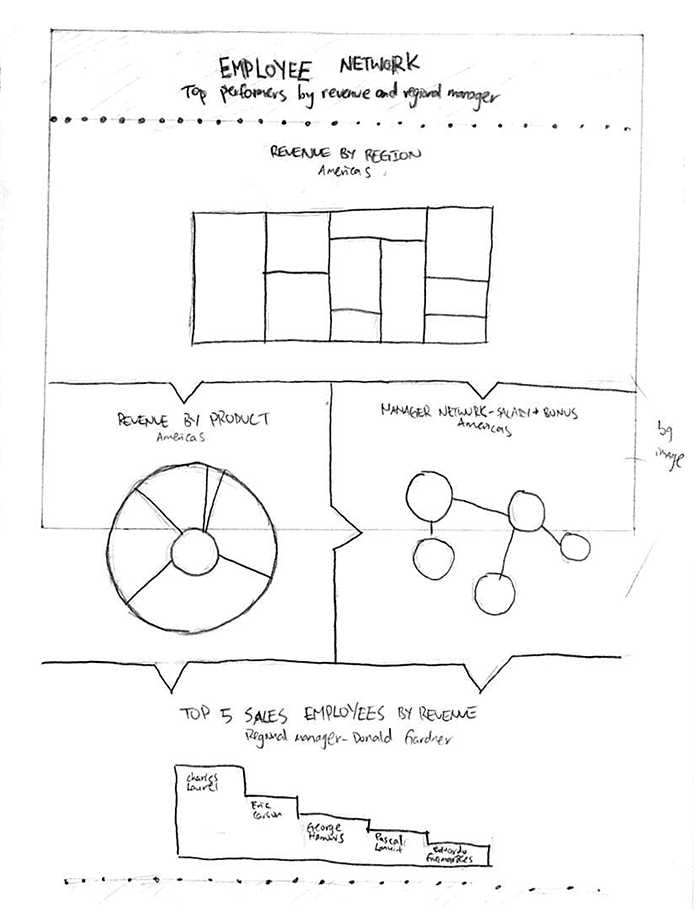 EMPLOYEE NETWORK
Top performers by revenue and regional manager
REVENUE BY REGION
Americas
REVENUE BY PRODUCT
Americas
MANAGER NETWORK - SALARY + BONUS
Americas
bg
image
TOP 5 SALES EMPLOYEES BY REVENUE
Regional manager - Donald Gardner
Charles
Laurel
Eric
Carson
George
Pascale
Eduardo